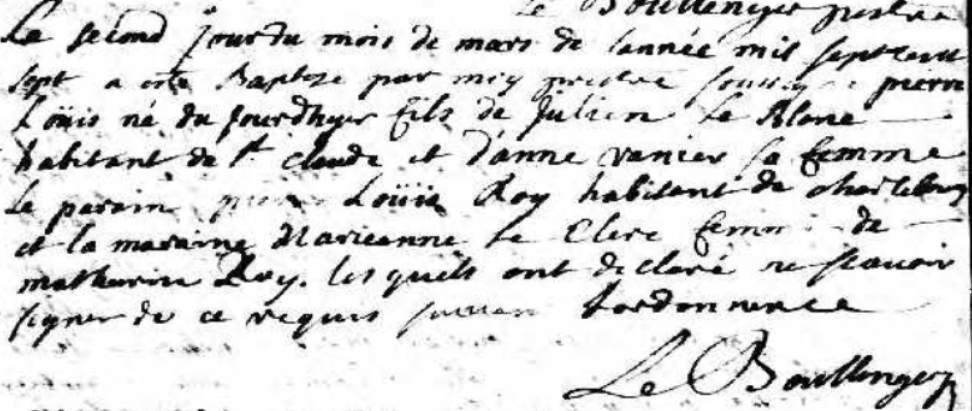 Le Boullenger prestre
Le second jour du mois de mars de lannée mil sept cent
sept a été Baptize par moy prestre soussigné pierre
Loüis né du jourdhyer fils de Julien Le Blanc
habitant de St claude et d'anne vanier sa femme
Le parain pierre Loüis Roy habitant de charlebourg
et la maraine Marieanne Le Clerc femme de
mathurin Roy. lesquels ont declaré ne scavoir
signer de ce requis suivan lordonnence
Le Boullenger